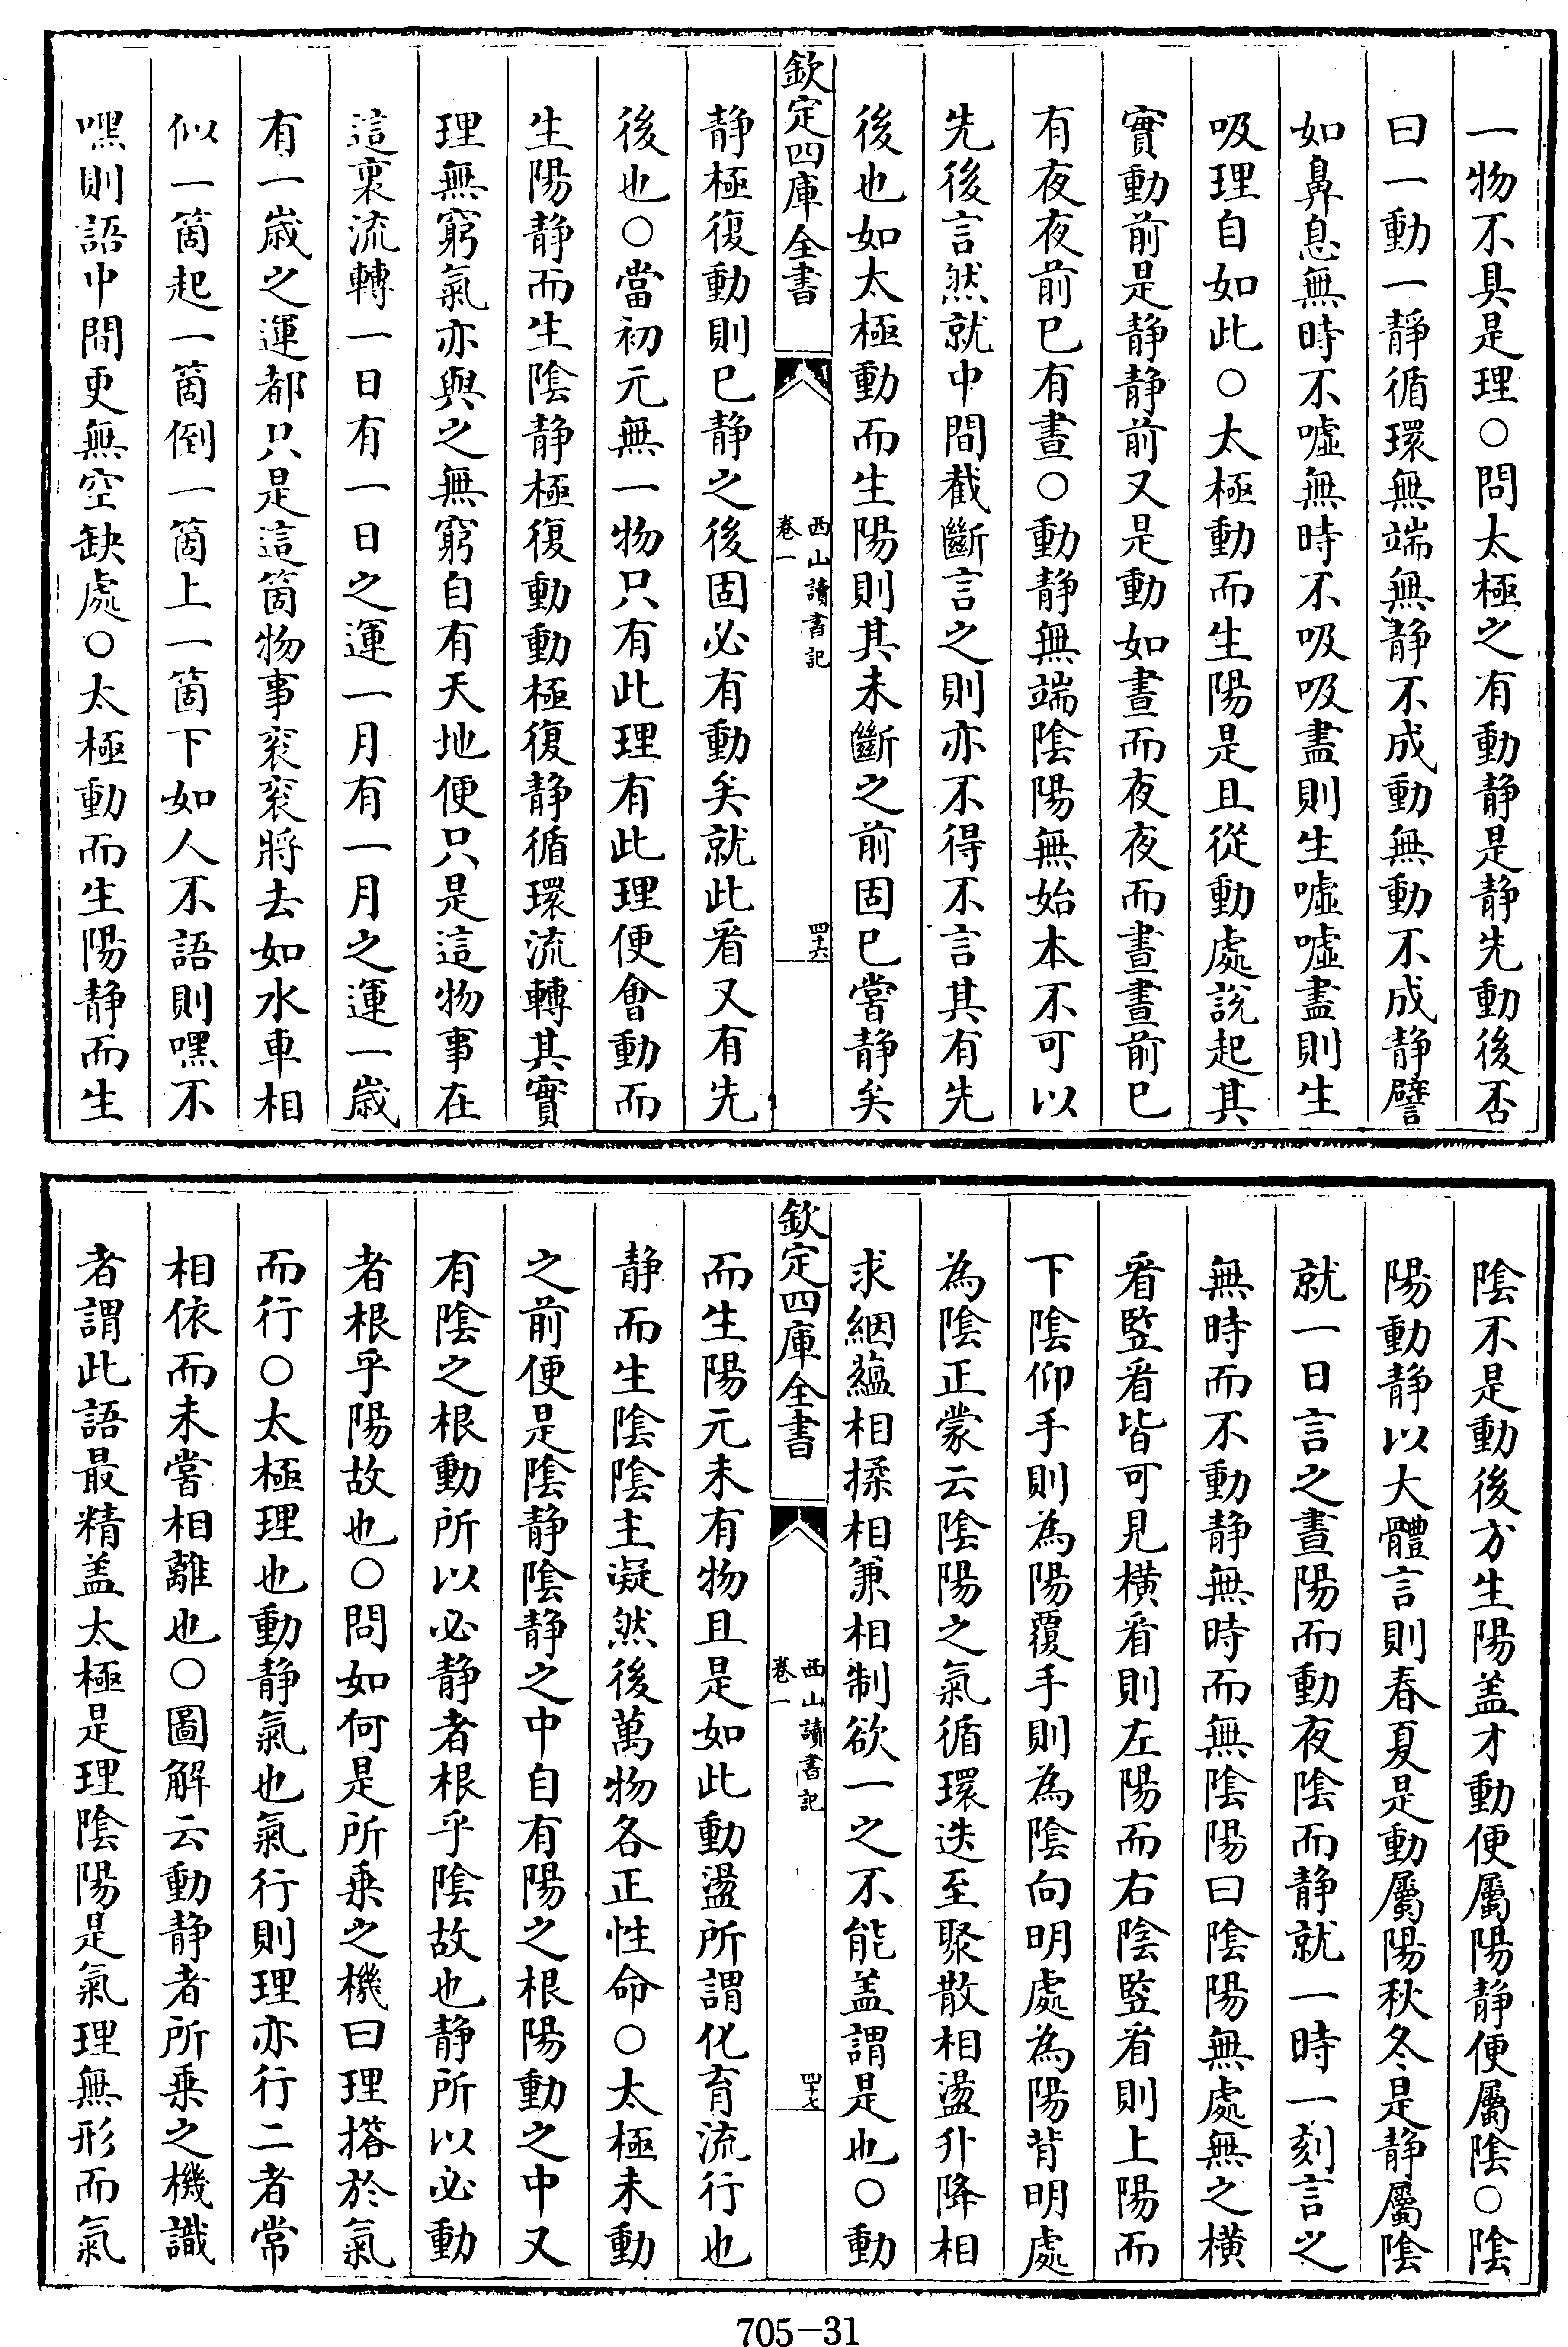 一物不具是理○問太極之有動静是静先動後否
曰一動一靜循環無端無静不成動無動不成静譬
如鼻息無時不噓無時不吸吸盡則生噓噓盡則生
吸理自如此○太極動而生陽是且從動處說起其
實動前是静静前又是動如晝而夜夜而晝晝前已
有夜夜前已有晝○動静無端陰陽無始本不可以
先後言然就中間截斷言之則亦不得不言其有先
後也如太極動而生陽則其未斷之前固已嘗静矣
欽定四庫全書
西山讀書記
卷一
四十六
静極復動則已静之後固必有動矣就此㸔又有先
後也○當初元無一物只有此理有此理便㑹動而
生陽静而生陰静極復動動極復静循環流轉其實
理無窮氣亦與之無窮自有天地便只是這物事在
這裏流轉一日有一日之運一月有一月之運一歳
有一歳之運都只是這箇物事衮衮將去如水車相
似一箇起一箇倒一箇上一箇下如人不語則嘿不
嘿則語中間更無空缺處○太極動而生陽静而生
陰不是動後方生陽盖才動便屬陽静便屬陰○陰
陽動静以大體言則春夏是動屬陽秋冬是静屬陰
就一日言之晝陽而動夜陰而静就一時一刻言之
無時而不動静無時而無陰陽曰陰陽無處無之横
㸔竪㸔皆可見横㸔則左陽而右陰竪㸔則上陽而
下陰仰手則為陽覆手則為陰向明處為陽背明處
為陰正蒙云陰陽之氣循環迭至聚散相盪升降相
求絪蘊相揉相兼相制欲一之不能盖謂是也○動
欽定四庫全書
西山讀書記
卷一
四十七
而生陽元未有物且是如此動盪所謂化育流行也
静而生陰陰主凝然後萬物各正性命○太極未動
之前便是陰静陰静之中自有陽之根陽動之中又
有陰之根動所以必静者根乎陰故也静所以必動
者根乎陽故也○問如何是所乗之機曰理撘於氣
而行○太極理也動静氣也氣行則理亦行二者常
相依而未嘗相離也○圖解云動静者所乗之機識
者謂此語最精盖太極是理陰陽是氣理無形而氣
705-31